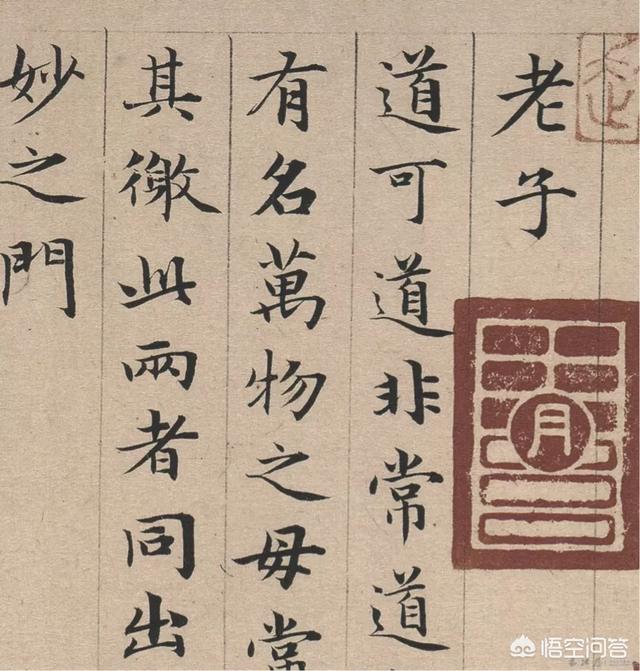 老子
道可道非常道
有名萬物之母常
其徼此兩者同出
妙之門
月
悟空问答